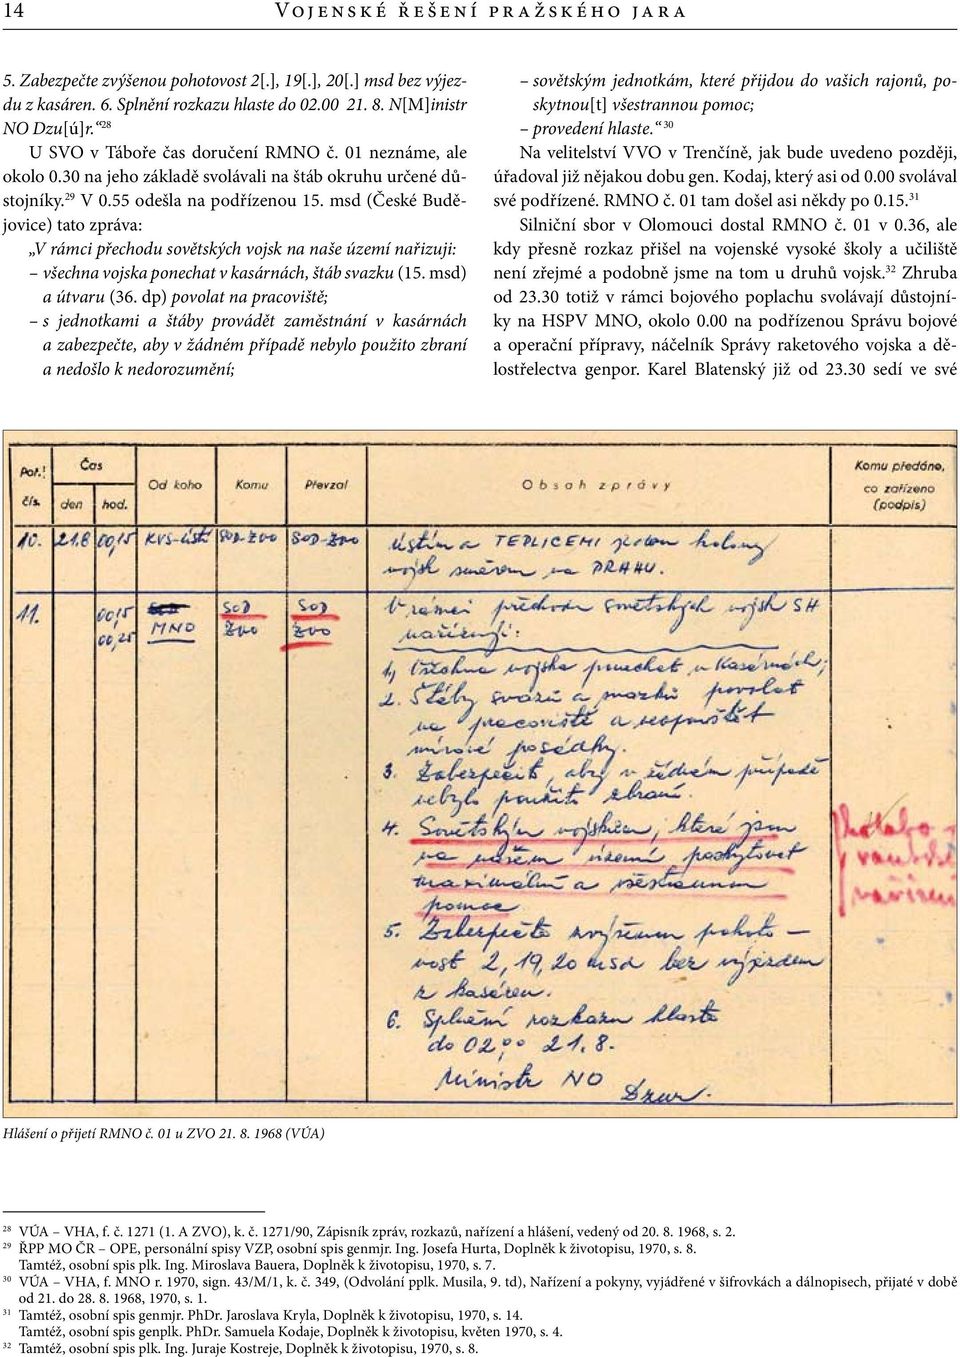 14 Vojenské řešení pražského jara
5. Zabezpečte zvýšenou pohotovost 2[.], 19[.], 20[.] msd bez výjez-
du z kasáren. 6. Splnění rozkazu hlaste do 02.00 21. 8. N[M]inistr
NO Dzu[ú]r.“ 28
U SVO v Táboře čas doručení RMNO č. 01 neznáme, ale
okolo 0.30 na jeho základě svolávali na štáb okruhu určené dů-
stojníky. 29 V 0.55 odešla na podřízenou 15. msd (České Budě-
jovice) tato zpráva:
„V rámci přechodu sovětských vojsk na naše území nařizuji:
– všechna vojska ponechat v kasárnách, štáb svazku (15. msd)
a útvaru (36. dp) povolat na pracoviště;
– s jednotkami a štáby provádět zaměstnání v kasárnách
a zabezpečte, aby v žádném případě nebylo použito zbraní
a nedošlo k nedorozumění;
– sovětským jednotkám, které přijdou do vašich rajonů, po-
skytnou[t] všestrannou pomoc;
– provedení hlaste.“ 30
Na velitelství VVO v Trenčíně, jak bude uvedeno později,
úřadoval již nějakou dobu gen. Kodaj, který asi od 0.00 svolával
své podřízené. RMNO č. 01 tam došel asi někdy po 0.15. 31
Silniční sbor v Olomouci dostal RMNO č. 01 v 0.36, ale
kdy přesně rozkaz přišel na vojenské vysoké školy a učiliště
není zřejmé a podobně jsme na tom u druhů vojsk. 32 Zhruba
od 23.30 totiž v rámci bojového poplachu svolávají důstojní-
ky na HSPV MNO, okolo 0.00 na podřízenou Správu bojové
a operační přípravy, náčelník Správy raketového vojska a dě-
lostřelectva genpor. Karel Blatenský již od 23.30 sedí ve své
Poř. čís. Čas den hod. Od koho Komu Převzal Obsah zprávy Komu předáno, co zařízeno (podpis)
10. 21.8 00,15 KVS-Ústí SOD-ZVO SOD-ZVO Ústím a TEPLICEMI jedou kolony
vojsk směrem na PRAHU.
11. 00,15 SOD SOD V rámci přechodu sovětských vojsk SH
00,25 MNO ZVO ZVO nařizuji:
1, Všechna vojska ponechat v kasárnách;
2. Štáby svazů a svazků povolat
na pracoviště a neopouštět
mírové posádky.
3. Zabezpečit, aby v žádném případě
nebylo použito zbraní.
4. Sovětským vojskům, které jsou
na našem území poskytovat
maximální a všestrannou
pomoc.
5. Zabezpečte zvýšenou pohoto-
vost 2, 19, 20 msd bez výjezdem
z kasáren.
6. Splnění rozkazu hlaste
do 02,00 21. 8.
Ministr NO
Dzur.
Hlášení o přijetí RMNO č. 01 u ZVO 21. 8. 1968 (VÚA)
28 VÚA – VHA, f. č. 1271 (1. A ZVO), k. č. 1271/90, Zápisník zpráv, rozkazů, nařízení a hlášení, vedený od 20. 8. 1968, s. 2.
29 ŘPP MO ČR – OPE, personální spisy VZP, osobní spis genmjr. Ing. Josefa Hurta, Doplněk k životopisu, 1970, s. 8.
Tamtéž, osobní spis plk. Ing. Miroslava Bauera, Doplněk k životopisu, 1970, s. 7.
30 VÚA – VHA, f. MNO r. 1970, sign. 43/M/1, k. č. 349, (Odvolání pplk. Musila, 9. td), Nařízení a pokyny, vyjádřené v šifrovkách a dálnopisech, přijaté v době
od 21. do 28. 8. 1968, 1970, s. 1.
31 Tamtéž, osobní spis genmjr. PhDr. Jaroslava Kryla, Doplněk k životopisu, 1970, s. 14.
Tamtéž, osobní spis genplk. PhDr. Samuela Kodaje, Doplněk k životopisu, květen 1970, s. 4.
32 Tamtéž, osobní spis plk. Ing. Juraje Kostreje, Doplněk k životopisu, 1970, s. 8.